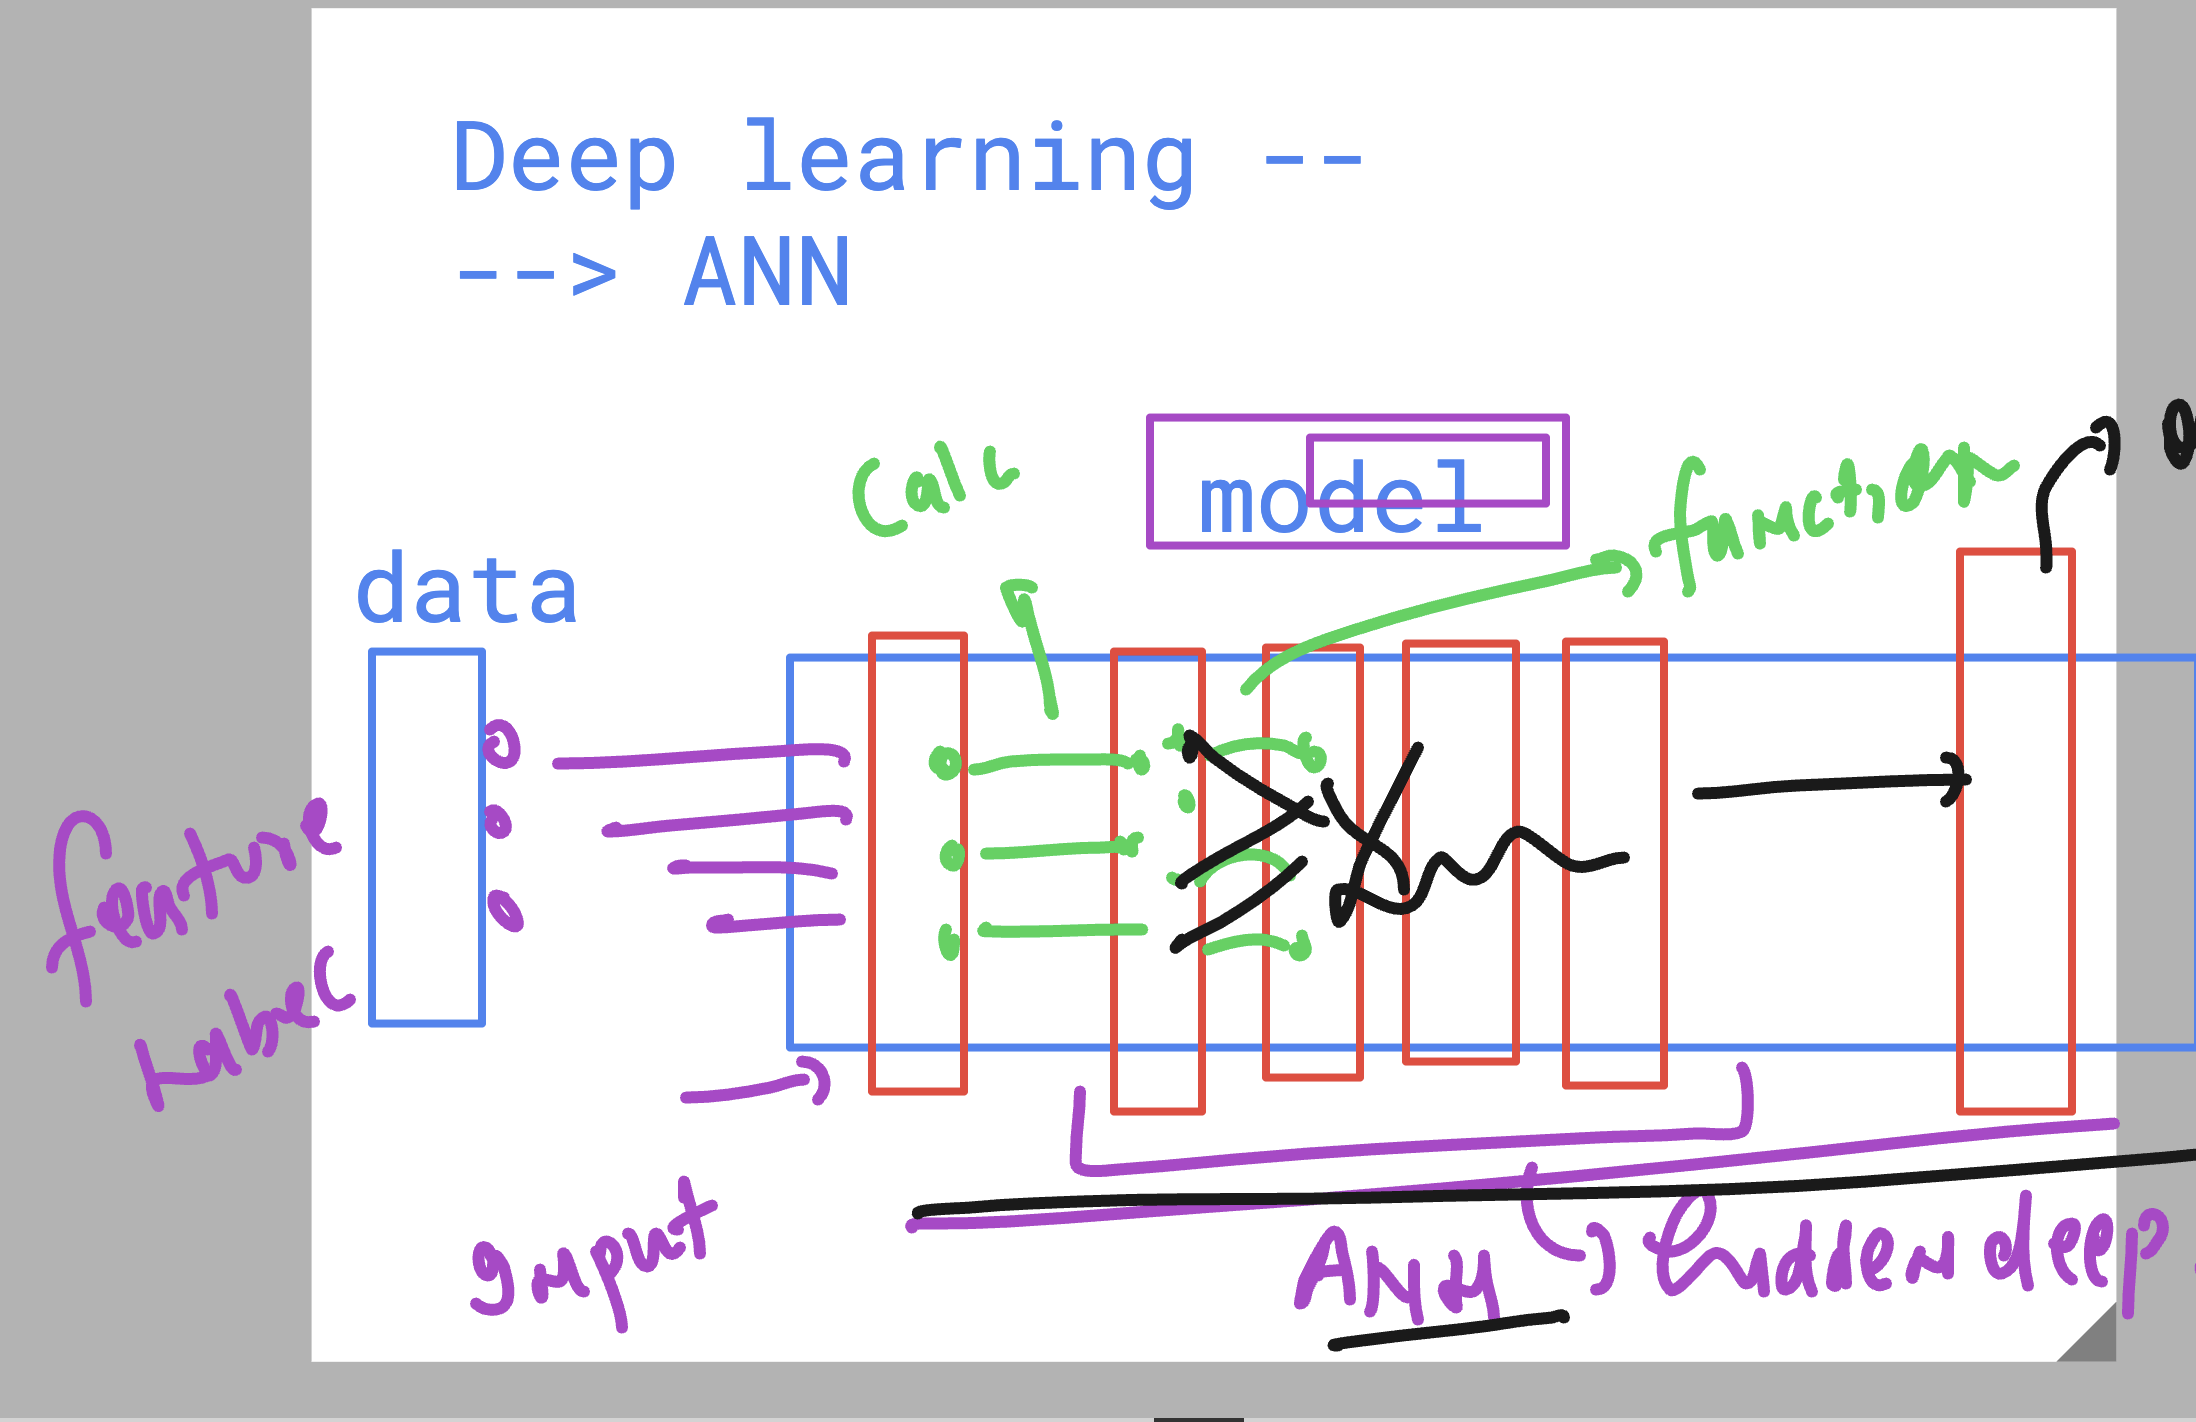 Deep learning --
--> ANN
model
Calc
function
data
feature
Label
Input
ANN
hidden deep